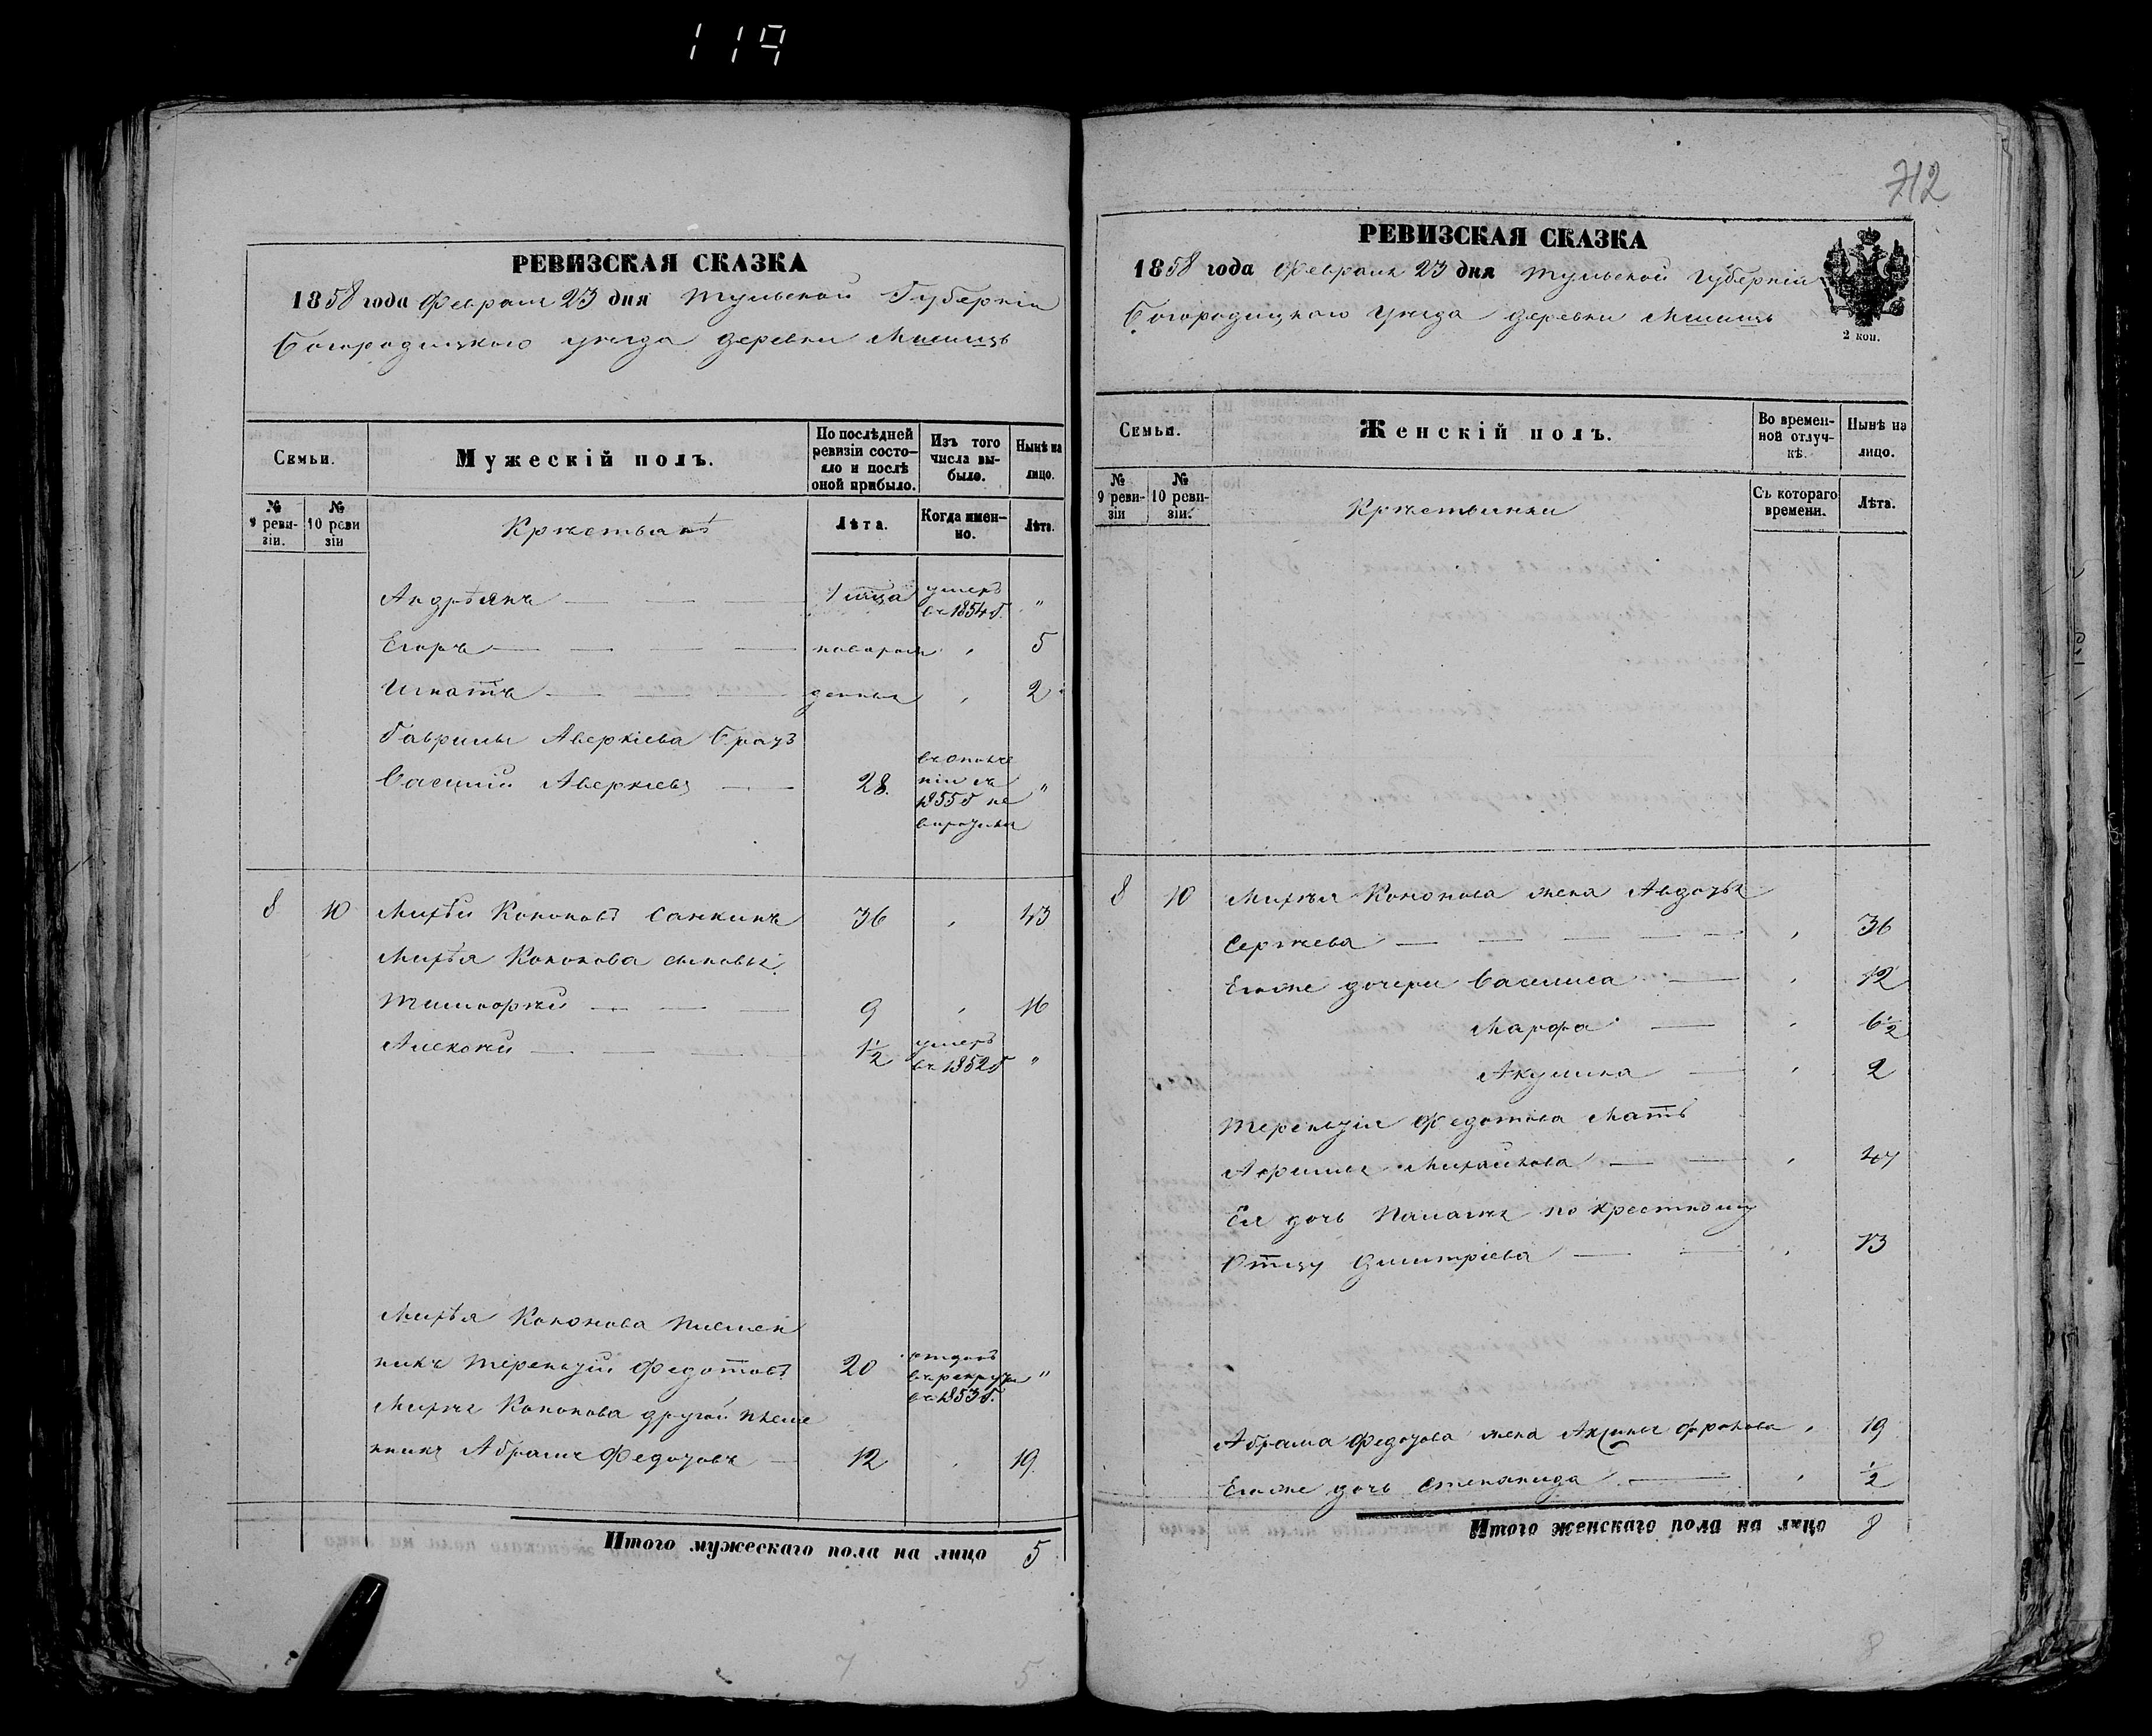 119
РЕВИЗСКАЯ СКАЗКА
1858 года Февраля 23 дня Тульской Губерніи
Богородицкаго уѣзда деревни
Семьи.
Мужескій полъ.
По послѣдней ревизіи состояло и послѣ оной прибыло.
Изъ того числа выбыло.
Нынѣ на лицо.
№ 9 ревизіи.
№ 10 ревизіи
Крѣстьянѣ
Лѣта.
Когда именно.
Лѣта.
Андрѣянъ — — — 1 мѣца умеръ въ 1854 г. "
Егоръ — — — — новорож , 5
Игнатъ — — — денныя , 2
Гаврилы Аверкіева братъ
Василій Аверкіевъ — 28. въ ополче ніи съ 1855 г не "
8 10 Михѣй Кононовъ Санкинъ 36 , 43
Михѣя Кононова сыновья
Тимофѣй — — — 9 , 16
Алексѣй — — — — 1½ умеръ въ 1852 г "
Михѣя Кононова племен
никъ Терентій Федотовъ 20 отданъ въ рекруты въ 1853 г. "
Михѣя Кононова другой племе
нникъ Абрамъ Федотовъ — 12 , 19
Итого мужескаго пола на лицо 5
7 5
712
РЕВИЗСКАЯ СКАЗКА
1858 года Февраля 23 дня Тульской Губерніи
Богородицкаго уѣзда деревни
2 коп.
Семьи.
Женскій полъ.
Во временной отлучкѣ.
Нынѣ на лицо.
№ 9 ревизіи
№ 10 ревизіи.
Крѣстьянки
Съ котораго времени.
Лѣта.
8 10 Михѣя Кононова жена Авдотья
Сергѣева — — — — — , 36
Егоже дочери Василиса — , 12
Марфа — , 6½
Акулина — , 2
Терентія Федотова Мать
Афимья Михайлова — — , 47
Ея дочь Палагѣя по крестному
Отцу Дмитріева — — , 13
Абрама Федотова жена Аксинья Фролова , 19
Егоже дочь Степанида — , ½
Итого женскаго пола на лицо 8
8